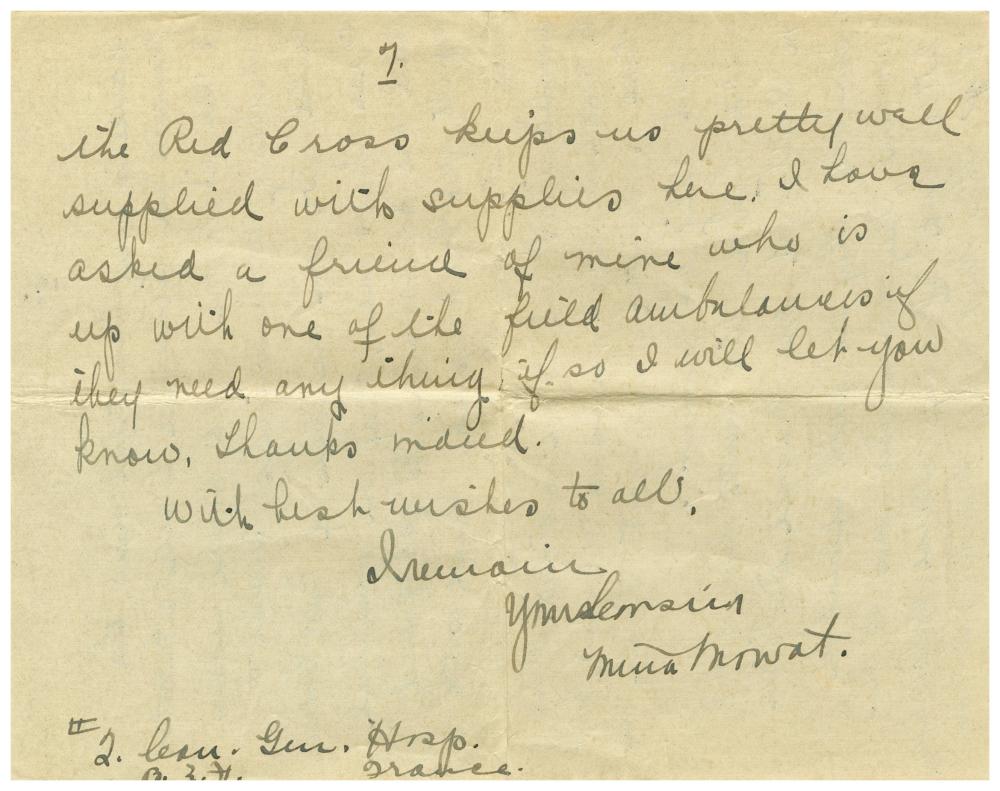 7.
the Red Cross keeps us pretty well
supplied with supplies here. I have
asked a friend of mine who is
up with one of the field ambulances if
they need any thing, if so I will let you
know, Thanks indeed.
With best wishes to all,
I remain
Your Cousin
Mina Mowat.
# 2. Can. Gen. Hosp.
B. E. F. France.